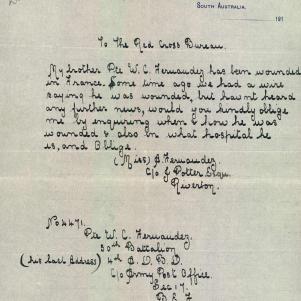 SOUTH AUSTRALIA.
191
To The Red Cross Bureau.
My brother Pte W. C. Fernandez has been wounded
in France. Some time ago we had a wire
saying he was wounded, but havnt heard
any further news, would you kindly oblige
me by enquiring when & how he was
wounded & also in what hospital he
is, and Oblige.
(Miss) S. Fernandez.
C/o J Potter Esqu.
Riverton.
No 4471.
Pte W. C. Fernandez.
50th Battalion
(his last address) 4th A. D. B. D.
C/o Army Post Office.
Dec 17.
B. E. F.